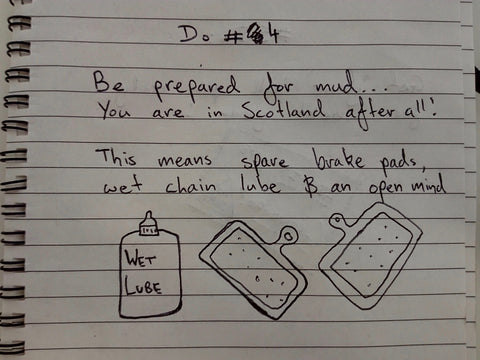 Do #4
Be prepared for mud...
You are in Scotland after all!
This means spare brake pads,
wet chain lube & an open mind
WET
LUBE